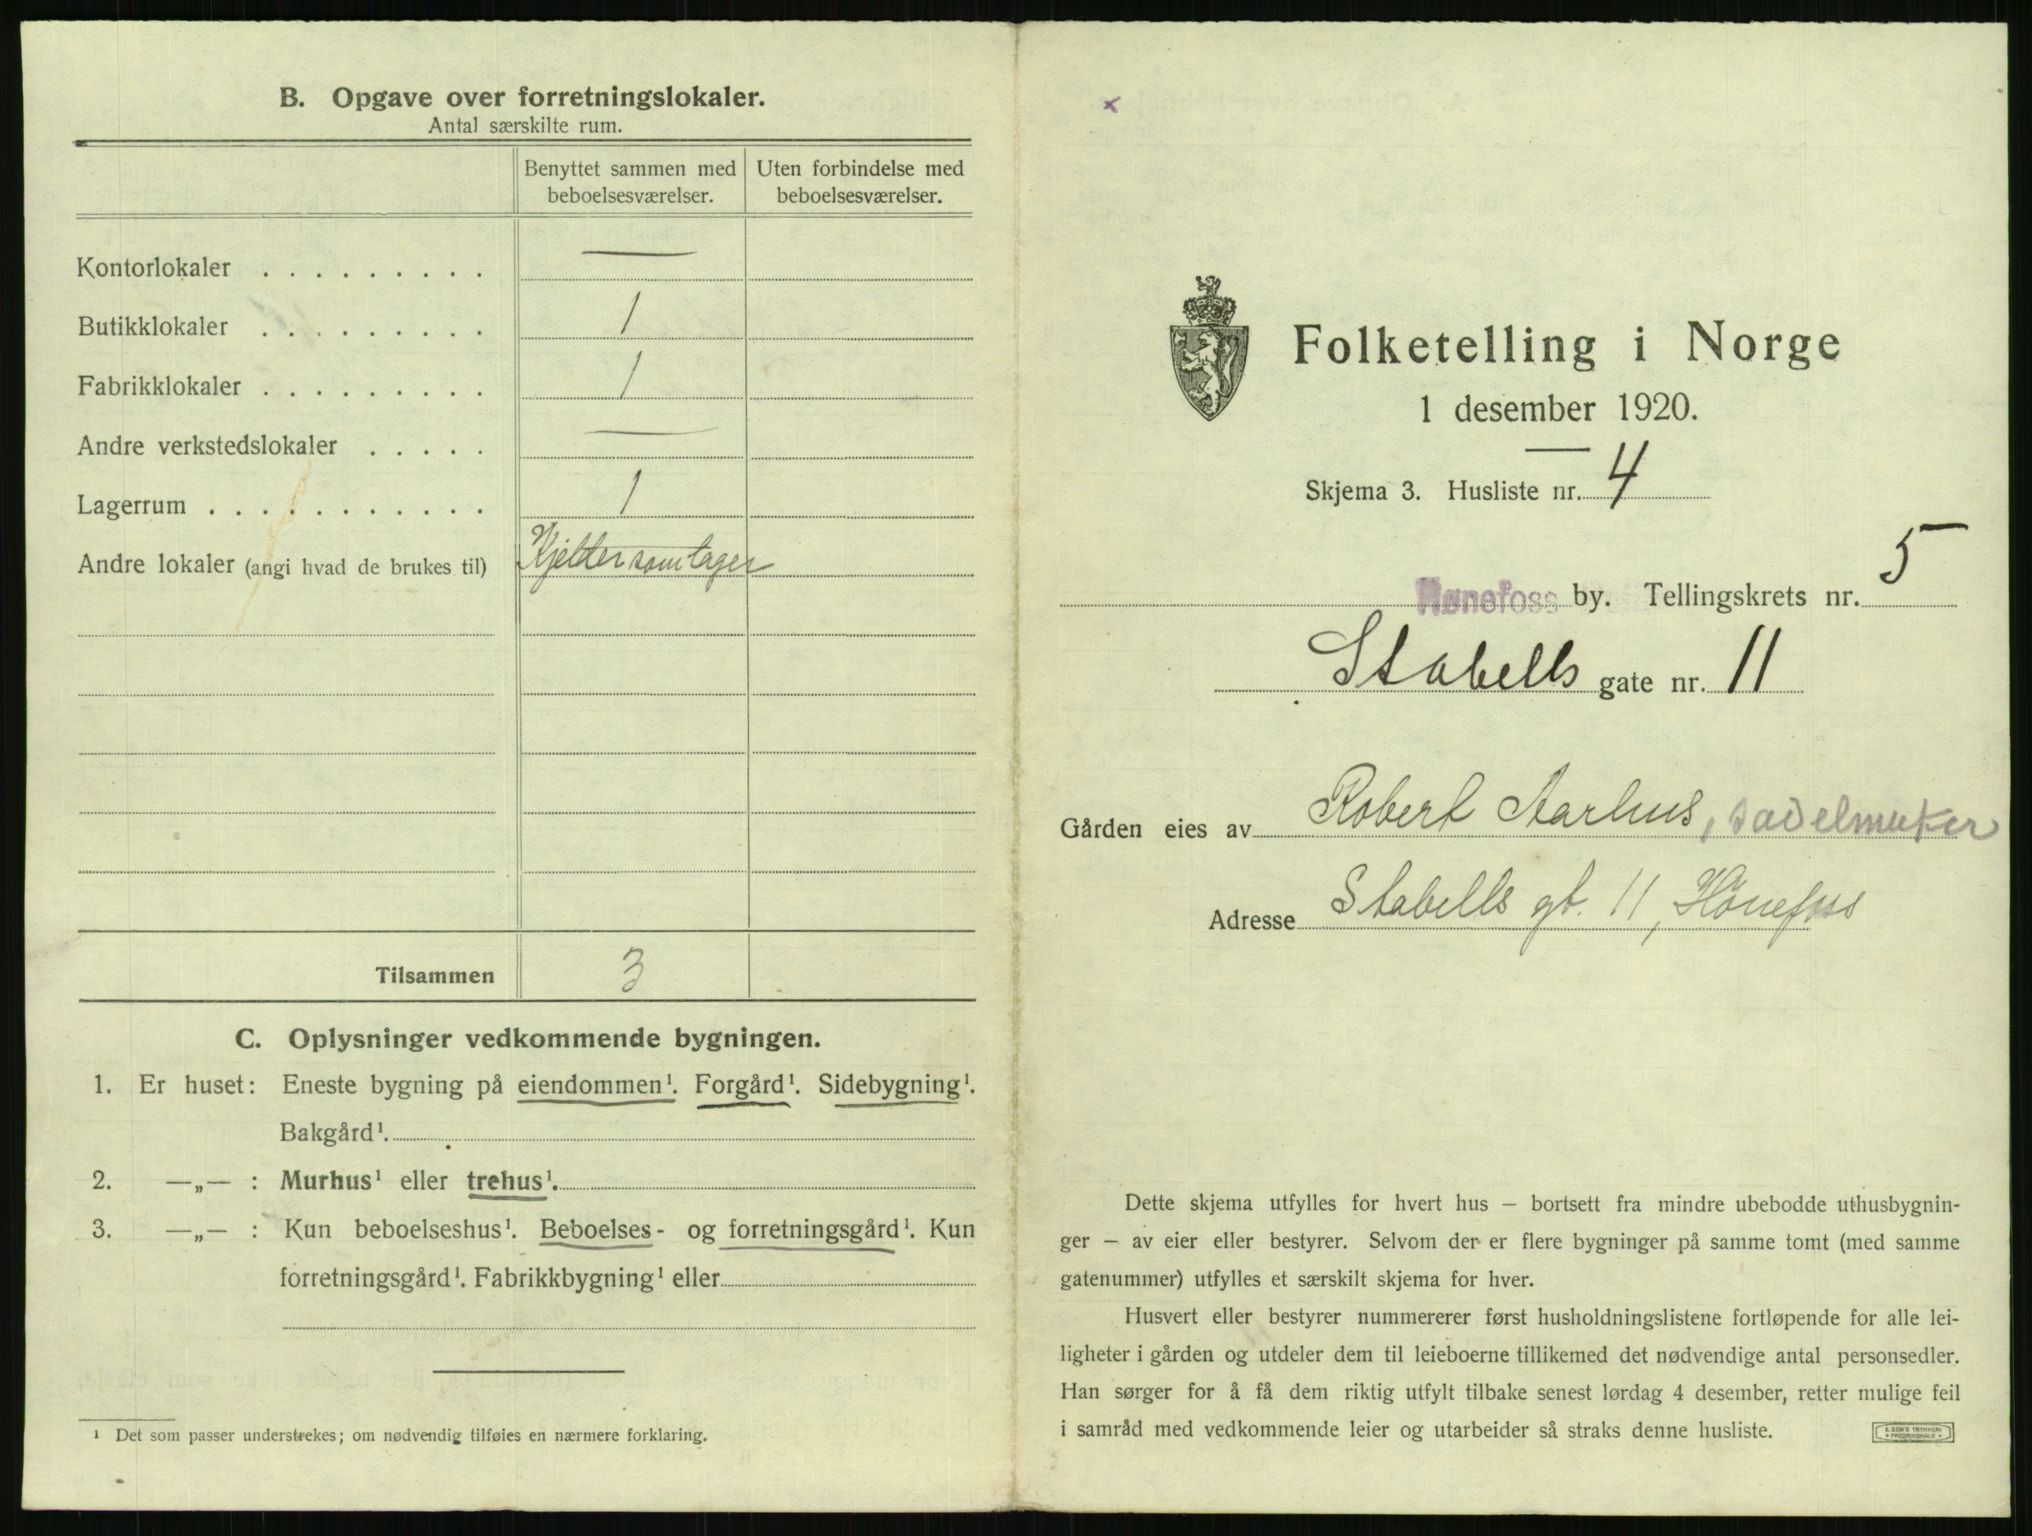 B. Opgave over forretningslokaler.
Antal særskilte rum.
Benyttet sammen med beboelsesværelser.
Uten forbindelse med beboelsesværelser.
Kontorlokaler . . . . . . . . . —
Butikklokaler . . . . . . . . . 1
Fabrikklokaler . . . . . . . . . 1
Andre verkstedslokaler . . . . . —
Lagerrum . . . . . . . . . . . . 1
Andre lokaler (angi hvad de brukes til) Kjelder som lager
Tilsammen 3
C. Oplysninger vedkommende bygningen.
1. Er huset: Eneste bygning på eiendommen¹. Forgård¹. Sidebygning¹.
Bakgård¹.
2. —„— : Murhus¹ eller trehus¹.
3. —„— : Kun beboelseshus¹. Beboelses- og forretningsgård¹. Kun
forretningsgård¹. Fabrikkbygning¹ eller
¹ Det som passer understrekes; om nødvendig tilføies en nærmere forklaring.
x
Folketelling i Norge
1 desember 1920.
Skjema 3. Husliste nr. 4
Hønefoss by. Tellingskrets nr. 5
Stabells gate nr. 11
Gården eies av Robert Aarhus, sadelmaker
Adresse Stabells gt. 11, Hönefoss
Dette skjema utfylles for hvert hus – bortsett fra mindre ubebodde uthusbygnin-
ger – av eier eller bestyrer. Selvom der er flere bygninger på samme tomt (med samme
gatenummer) utfylles et særskilt skjema for hver.
Husvert eller bestyrer nummererer først husholdningslistene fortløpende for alle lei-
ligheter i gården og utdeler dem til leieboerne tillikemed det nødvendige antal personsedler.
Han sørger for å få dem riktig utfylt tilbake senest lørdag 4 desember, retter mulige feil
i samråd med vedkommende leier og utarbeider så straks denne husliste.
E. SEM'S TRYKKERI
FREDRIKSHALD